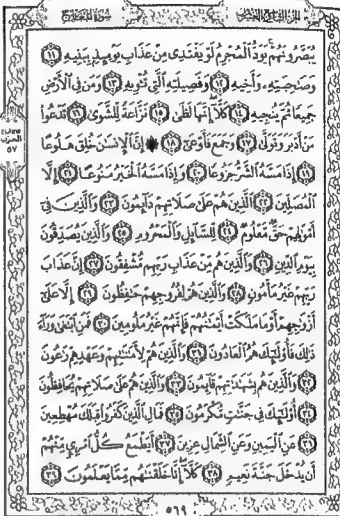 الجزء التاسع والعشرون سورة المعارج
يُبَصَّرُونَهُمْ يَوَدُّ الْمُجْرِمُ لَوْ يَفْتَدِى مِنْ عَذَابِ يَوْمِئِذٍ بِبَنِيهِ ١١
وَصَاحِبَتِهِ وَأَخِيهِ ١٢ وَفَصِيلَتِهِ الَّتِى تُـْٔوِيهِ ١٣ وَمَن فِى الْأَرْضِ
جَمِيعًا ثُمَّ يُنجِيهِ ١٤ كَلَّا إِنَّهَا لَظَى ١٥ نَزَّاعَةً لِّلشَّوَى ١٦ تَدْعُوا
مَنْ أَدْبَرَ وَتَوَلَّى ١٧ وَجَمَعَ فَأَوْعَى ١٨ إِنَّ الْإِنسَٰنَ خُلِقَ هَلُوعًا
١٩ إِذَا مَسَّهُ الشَّرُّ جَزُوعًا ٢٠ وَإِذَا مَسَّهُ الْخَيْرُ مَنُوعًا ٢١ إِلَّا
الْمُصَلِّينَ ٢٢ الَّذِينَ هُمْ عَلَى صَلَاتِهِمْ دَآئِمُونَ ٢٣ وَالَّذِينَ فِى
أَمْوَٰلِهِمْ حَقٌّ مَّعْلُومٌ ٢٤ لِّلسَّآئِلِ وَالْمَحْرُومِ ٢٥ وَالَّذِينَ يُصَدِّقُونَ
بِيَوْمِ الدِّينِ ٢٦ وَالَّذِينَ هُم مِّنْ عَذَابِ رَبِّهِم مُّشْفِقُونَ ٢٧ إِنَّ عَذَابَ
رَبِّهِمْ غَيْرُ مَأْمُونٍ ٢٨ وَالَّذِينَ هُمْ لِفُرُوجِهِمْ حَٰفِظُونَ ٢٩ إِلَّا عَلَى
أَزْوَٰجِهِمْ أَوْ مَا مَلَكَتْ أَيْمَٰنُهُمْ فَإِنَّهُمْ غَيْرُ مَلُومِينَ ٣٠ فَمَنِ ابْتَغَى وَرَآءَ
ذَٰلِكَ فَأُولَٰٓئِكَ هُمُ الْعَادُونَ ٣١ وَالَّذِينَ هُمْ لِأَمَٰنَٰتِهِمْ وَعَهْدِهِمْ رَٰعُونَ
٣٢ وَالَّذِينَ هُم بِشَهَٰدَٰتِهِمْ قَآئِمُونَ ٣٣ وَالَّذِينَ هُمْ عَلَى صَلَاتِهِمْ يُحَافِظُونَ
٣٤ أُولَٰٓئِكَ فِى جَنَّٰتٍ مُّكْرَمُونَ ٣٥ فَمَالِ الَّذِينَ كَفَرُوا قِبَلَكَ مُهْطِعِينَ
٣٦ عَنِ الْيَمِينِ وَعَنِ الشِّمَالِ عِزِينَ ٣٧ أَيَطْمَعُ كُلُّ امْرِئٍ مِّنْهُمْ
أَن يُدْخَلَ جَنَّةَ نَعِيمٍ ٣٨ كَلَّا إِنَّا خَلَقْنَٰهُم مِّمَّا يَعْلَمُونَ ٣٩
٥٦٩
الحزب
٥٧